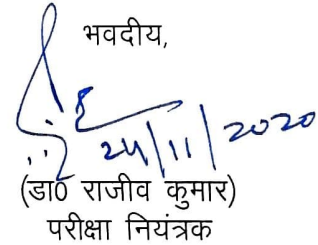 भवदीय,
24/11/2020
(डा0 राजीव कुमार)
परीक्षा नियंत्रक